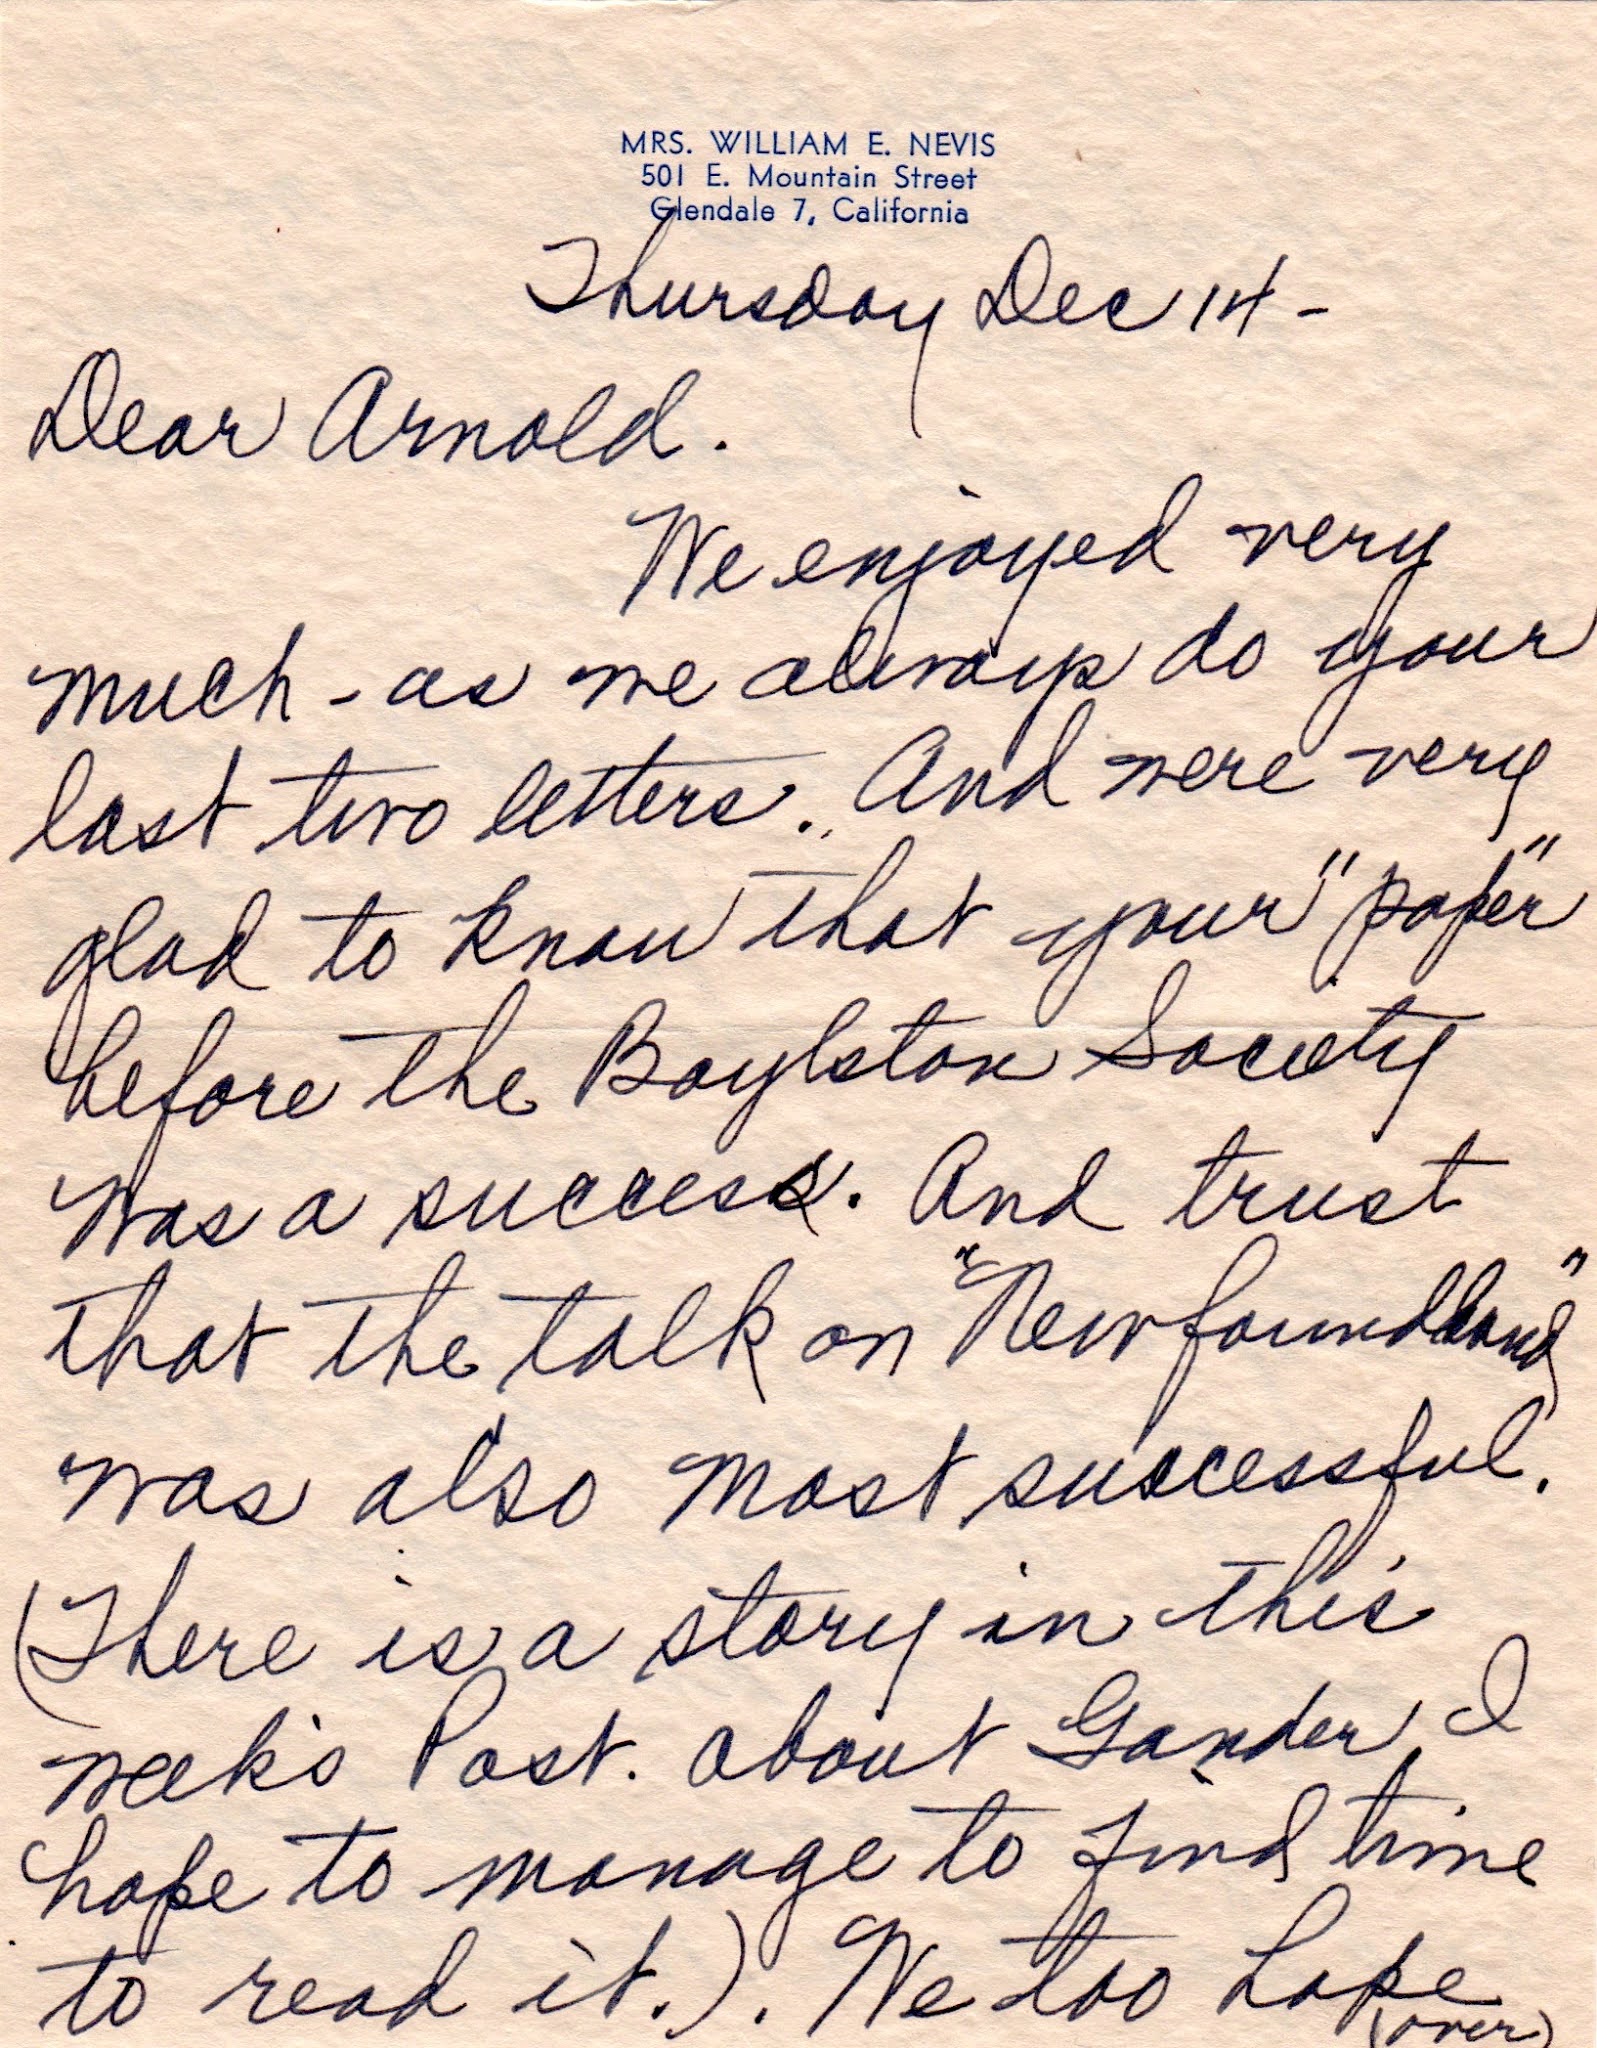 MRS. WILLIAM E. NEVIS
501 E. Mountain Street
Glendale 7, California
Thursday Dec 14 -
Dear Arnold.
We enjoyed very
much - as we always do your
last two letters. And were very
glad to know that your "paper"
before the Boylston Society
was a success. And trust
that the talk on "Newfoundland"
was also most successful.
(There is a story in this
week's Post. about Gander. I
hope to manage to find time
to read it.). We too hope
(over)